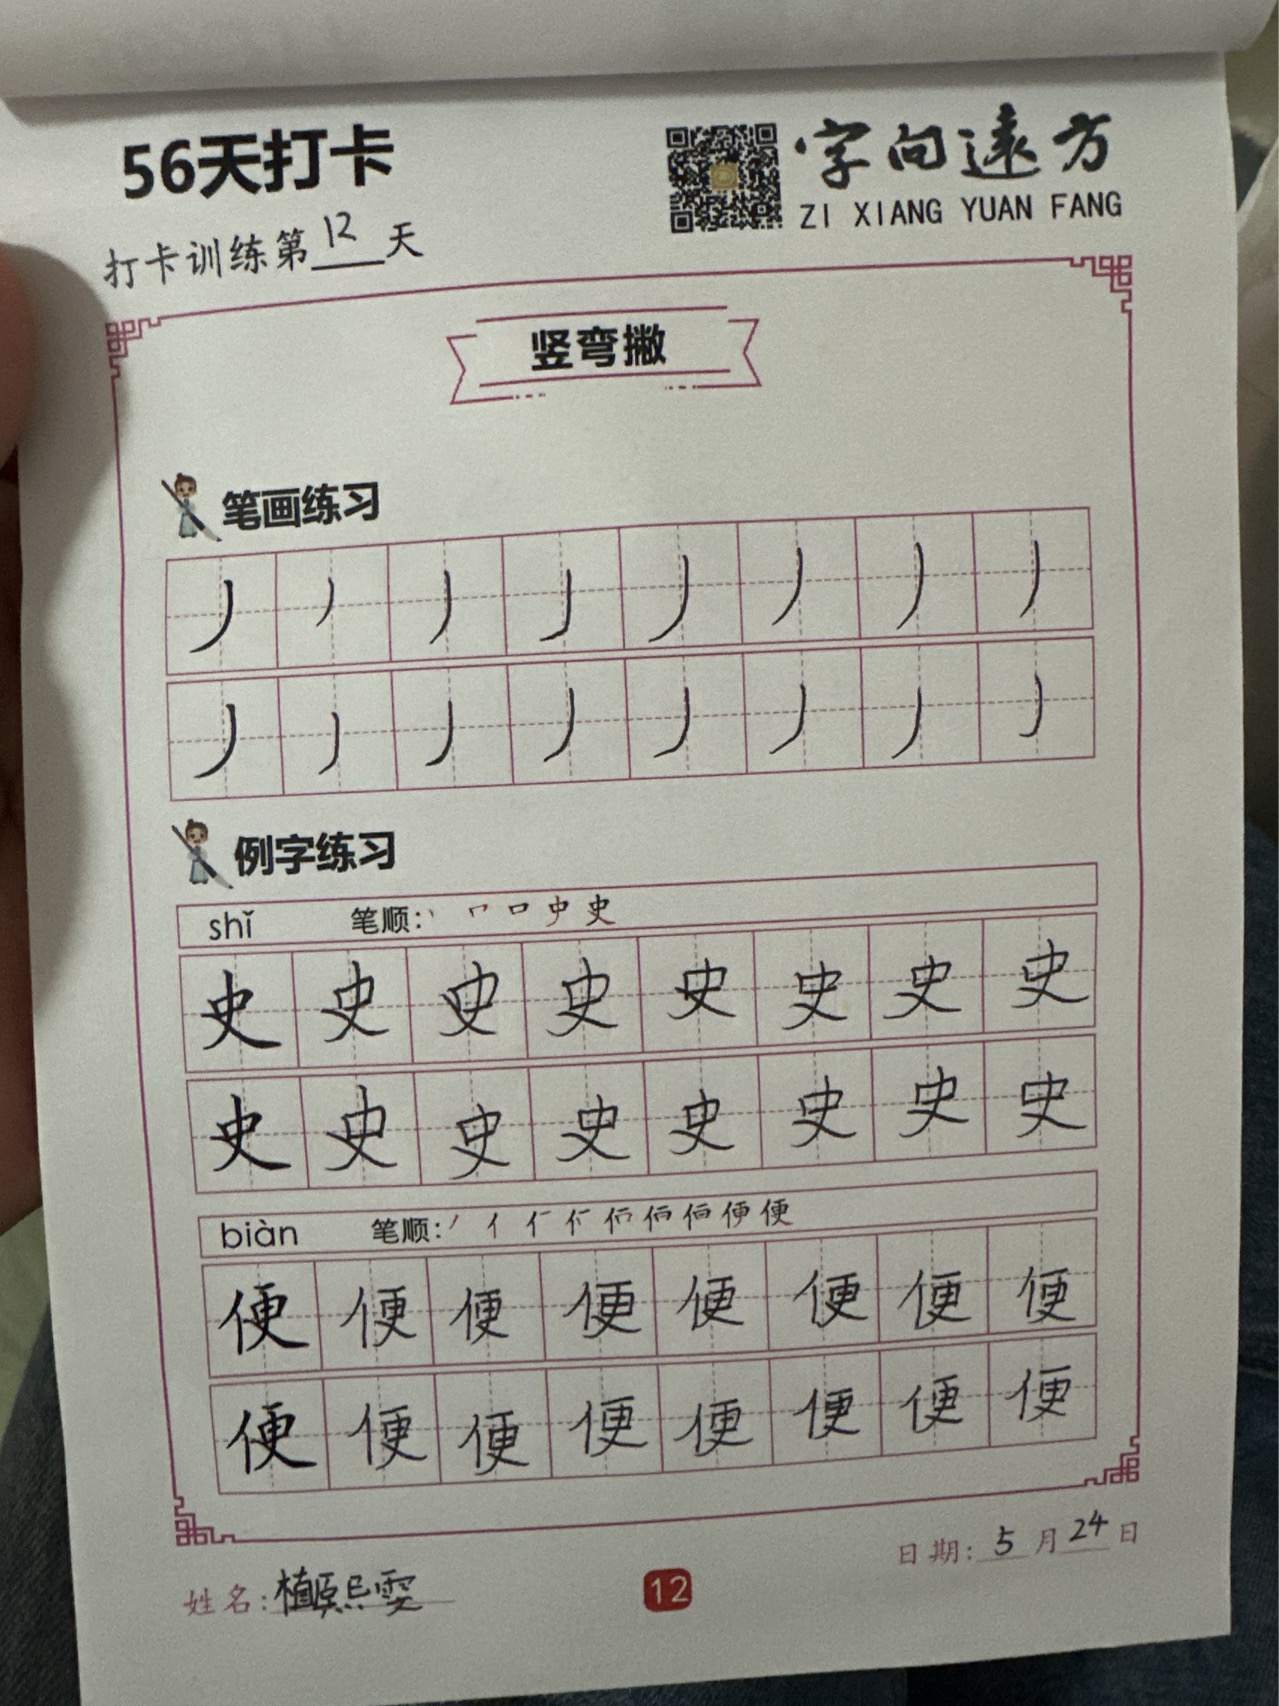 56天打卡
字向遠方
ZI XIANG YUAN FANG
打卡训练第12天
竖弯撇
笔画练习
丿丿丿丿丿丿丿丿
丿丿丿丿丿丿丿丿
例字练习
shǐ 笔顺:丨 𠃍 口 史 史
史史史史史史史史
史史史史史史史史
biàn 笔顺:丿 亻 便
便便便便便便便便
便便便便便便便便
日期:5月24日
姓名:植熙雯
12